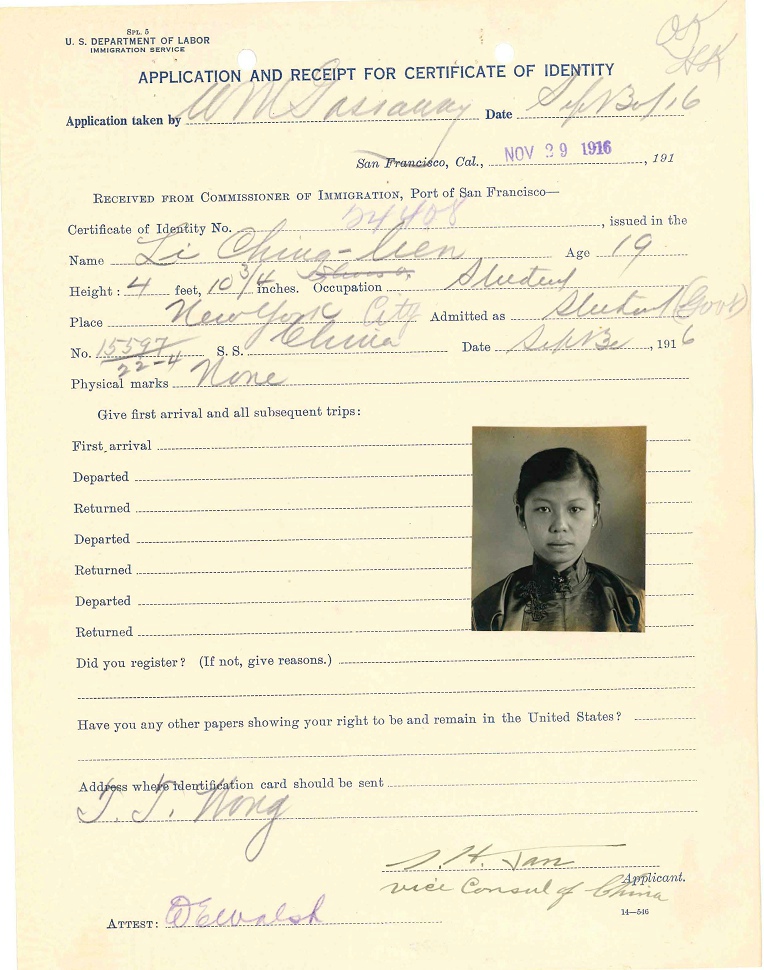 SPL. 5
U. S. DEPARTMENT OF LABOR
IMMIGRATION SERVICE
OK
APPLICATION AND RECEIPT FOR CERTIFICATE OF IDENTITY
Application taken by W M Gassaway Date Sept 30/16
San Francisco, Cal., NOV 29 1916, 191
RECEIVED FROM COMMISSIONER OF IMMIGRATION, PORT OF SAN FRANCISCO—
Certificate of Identity No. 24408, issued in the
Name Li Ching-lien Age 19
Height: 4 feet, 10 3/4 inches. Occupation Student
Place New York City Admitted as Student (Gov't)
No. 15597/22-4 S. S. China Date Sept 30, 1916
Physical marks None
Give first arrival and all subsequent trips:
First arrival
Departed
Returned
Departed
Returned
Departed
Returned
Did you register? (If not, give reasons.)
Have you any other papers showing your right to be and remain in the United States?
Address where identification card should be sent
T. T. Wong
S. H. Tan
Applicant.
Vice Consul of China
14—546
ATTEST: DEWalsh